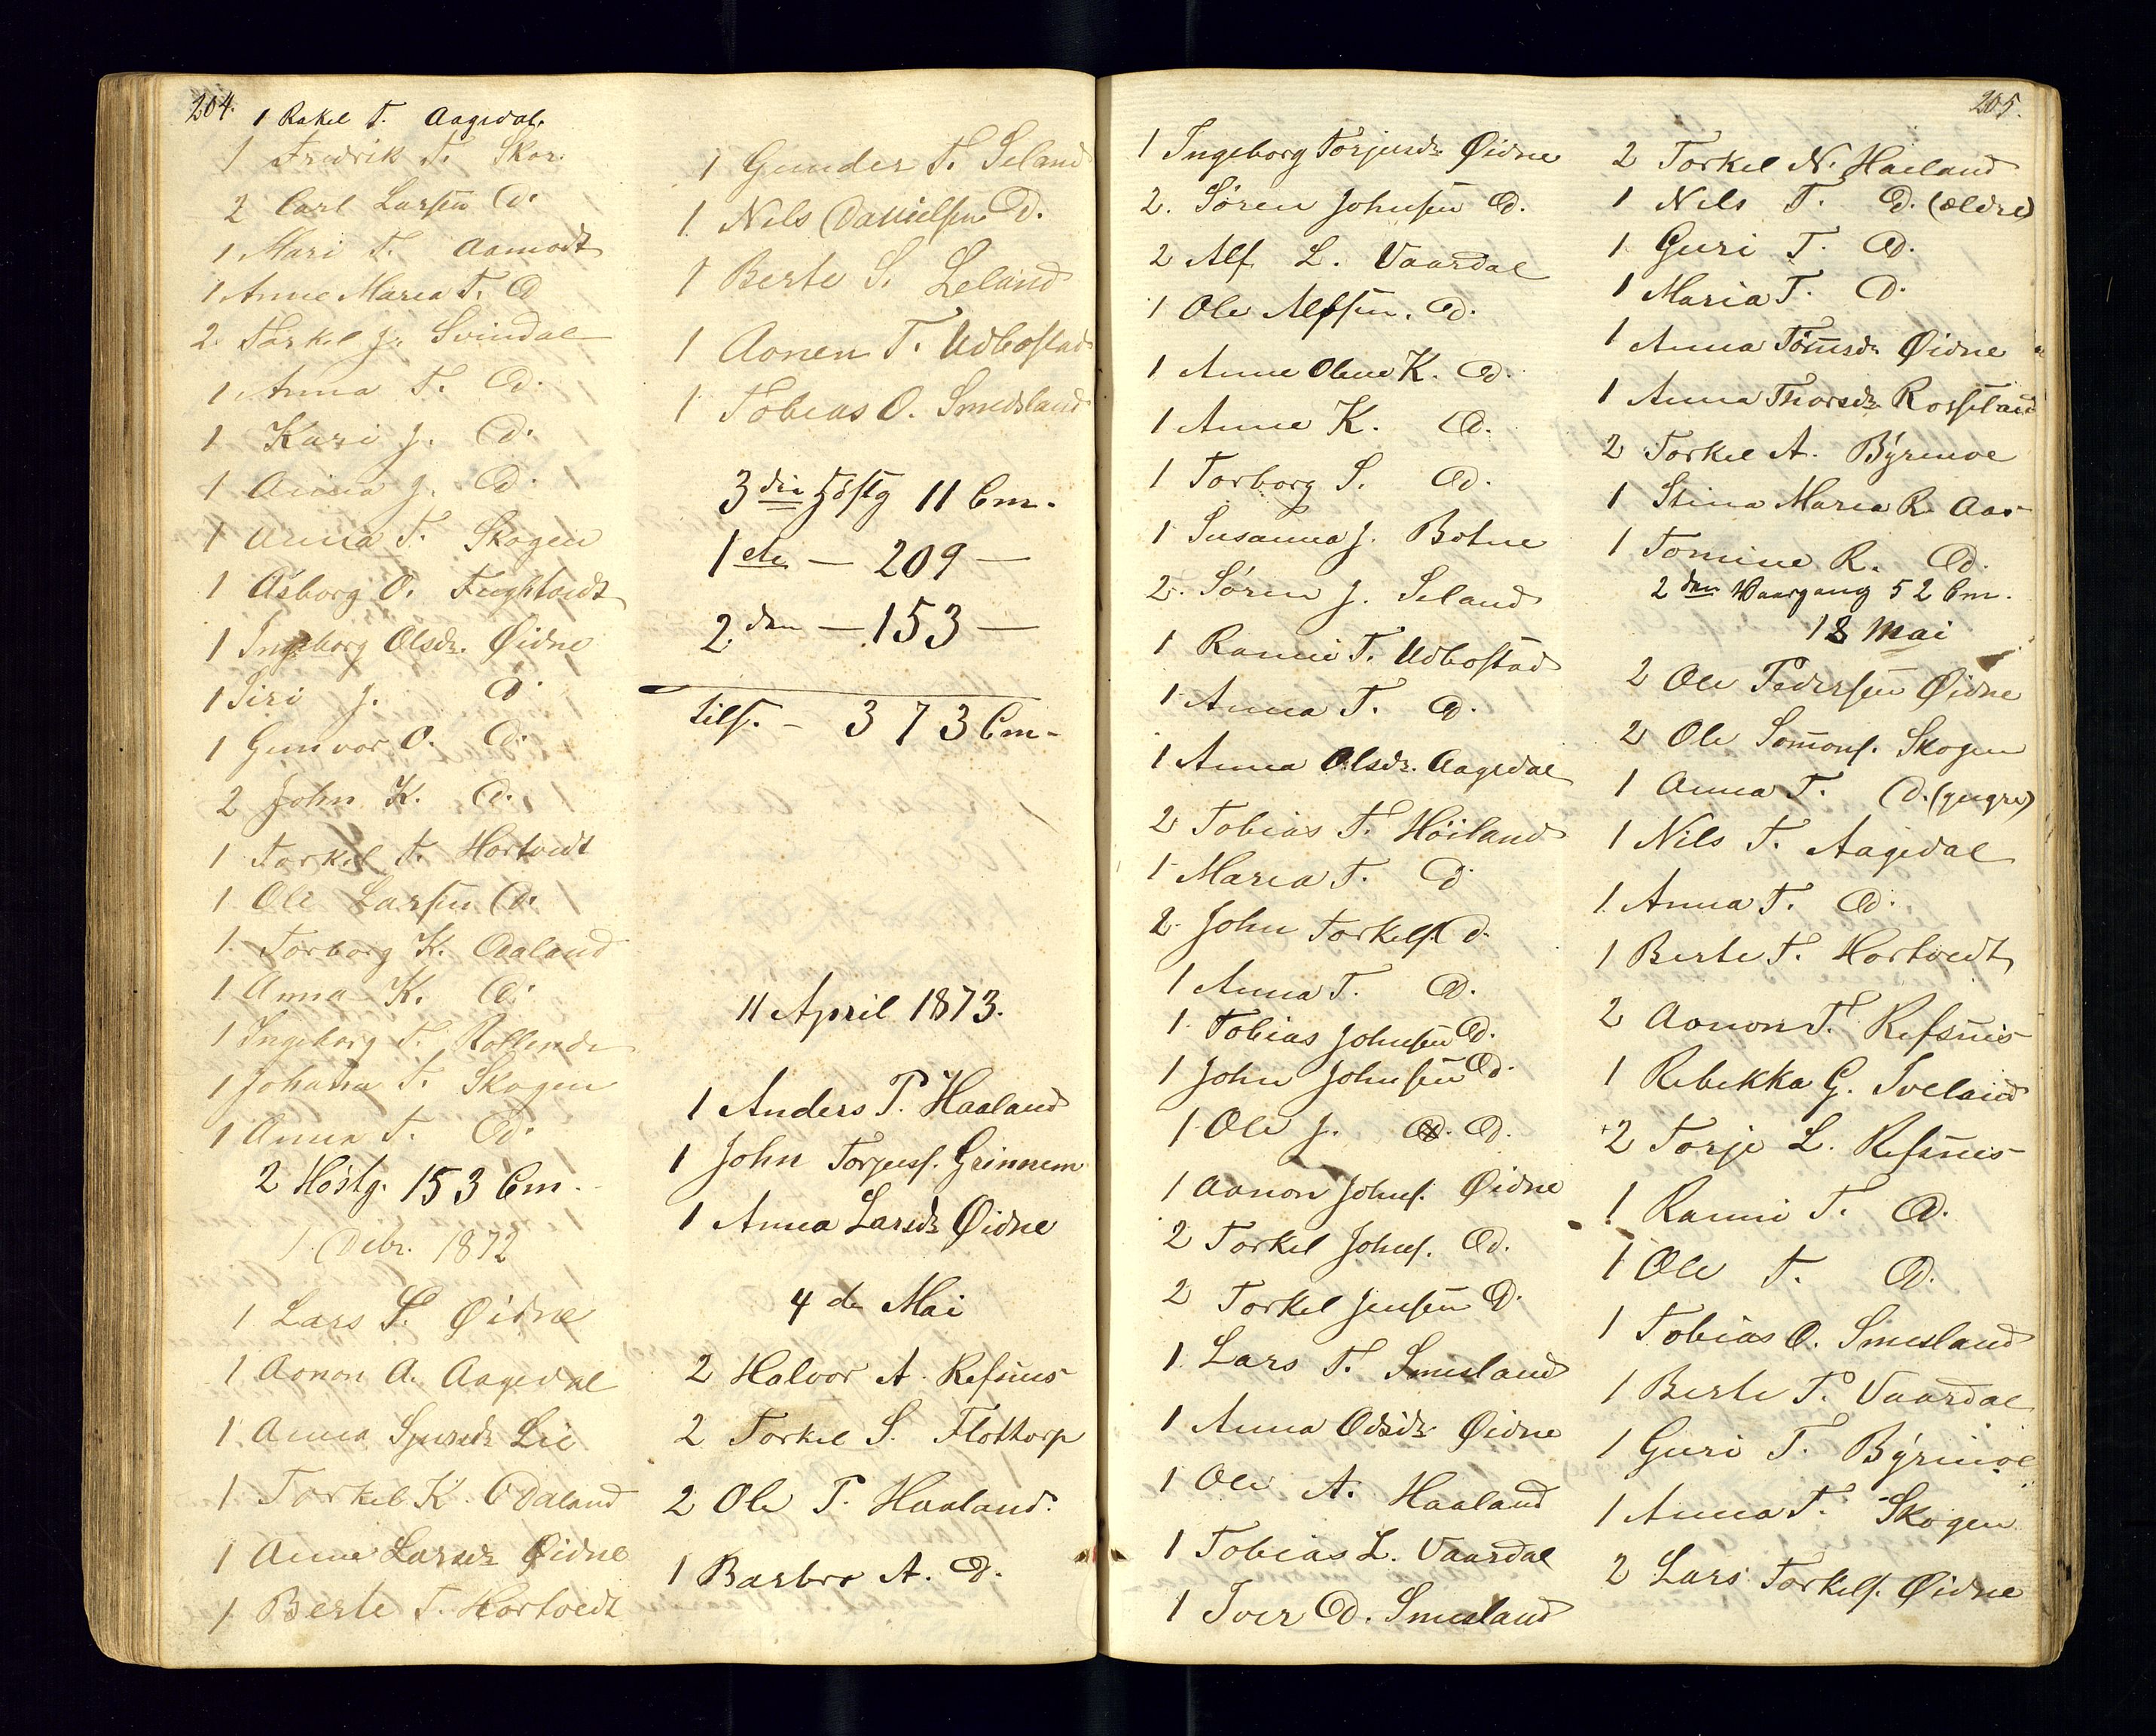 204.
1 Rakel T. Aagedal.
1 Fredrik T. Skor.
2 Carl Larsen D.
1 Mari T. Aamodt
1 Anne Maria T. D
2. Torkel J. Svindal
1 Anna T. D.
1 Kari J. D.
1 Anna J. D.
1 Anna T. Skogen
1 Asborg O.
1 Ingeborg Olsdr. Øidne
1 Siri J. D.
1 Gunvor O. D.
2 John K. D.
1 Torkel T. Hortvedt
1 Ole Larsen D.
1. Torborg K. Aaland
1 Anna K. D.
1 Ingeborg T.
1 Johanna T. Skogen
1 Anna T. D.
2 Høstg. 153 Cm.
1 Decbr. 1872
1 Lars S. Øidne
1 Aonon A. Aagedal
1 Anna Sjursdr. Lie
1 Torkel K. Odaland
1 Anne Larsdr Øidne
1 Berte T. Hortvedt
1 Gunder T. Seland
1 Nils Danielsen D.
1 Berte S. Leland
1 Aonen T. Udbostad
1 Tobias O. Smedsland
3die Høstg 11 Cm.
1ste — 209 —
2den — 153 —
tils. — 373 Cm.
11 April 1873.
1 Anders P. Haaland
1 John Torjusf. Grinnem
1 Anna Larsdr Øidne
4de Mai
2 Halvor A. Refsnes
2 Torkel S. Flottorp
2 Ole P. Haaland.
1 Barbro A. D.
205.
1 Ingeborg Torjusdr Øidne
2. Søren Johnsen D.
2 Alf L. Vaardal
1 Ole Alfsen. D.
1 Anne Olene K. D.
1 Anne K. D.
1 Torborg S. D.
1 Susanna J. Botne
2. Søren J. Seland
1 Rannei T. Udbostad
1 Anna T. D.
1 Anna Olsdr. Aagedal
2 Tobias T. Höiland
1 Maria T. D.
2. John Torkelf. D.
1 Anna T. D.
1. Tobias Johnsen D.
1 John Johnsen D.
1 Ole J. D. D.
1 Aanon Johnf. Øidne
2 Torkel Johnf. D.
2 Torkel Jensen D.
1. Lars T. Smesland
1 Anna Odsdr Øidne
1 Ole A. Haaland
1 Tobias L. Vaardal
1 Iver D. Smesland
2 Torkel N. Haaland
1 Nils T. D. (ældre)
1 Guri T. D.
1 Maria T. D.
1 Anna Tomesdr Øidne
1 Anna Thorsdr Rosseland
2 Torkel A. Byremoe
1 Stina Maria R. Aas
1 Tomine R. D.
2den Vaargang 52 Cm.
18 Mai
2 Ole Pedersen Øidne
2 Ole Somonf. Skogen
1 Anna T. D. (yngre)
1 Nils T. Aagedal
1. Anna T. D.
1 Berte T. Hortvedt
2 Aonon T. Refsnes
1 Rebekka G. Tveland
2 Torje L. Refsnes
1 Ranni T. D.
1 Ole T. D.
1 Tobias O. Smesland
1 Berte T. Vaardal
1 Guri T. Byremoe
1 Anna T. Skogen
2 Lars Torkelf. Øidne